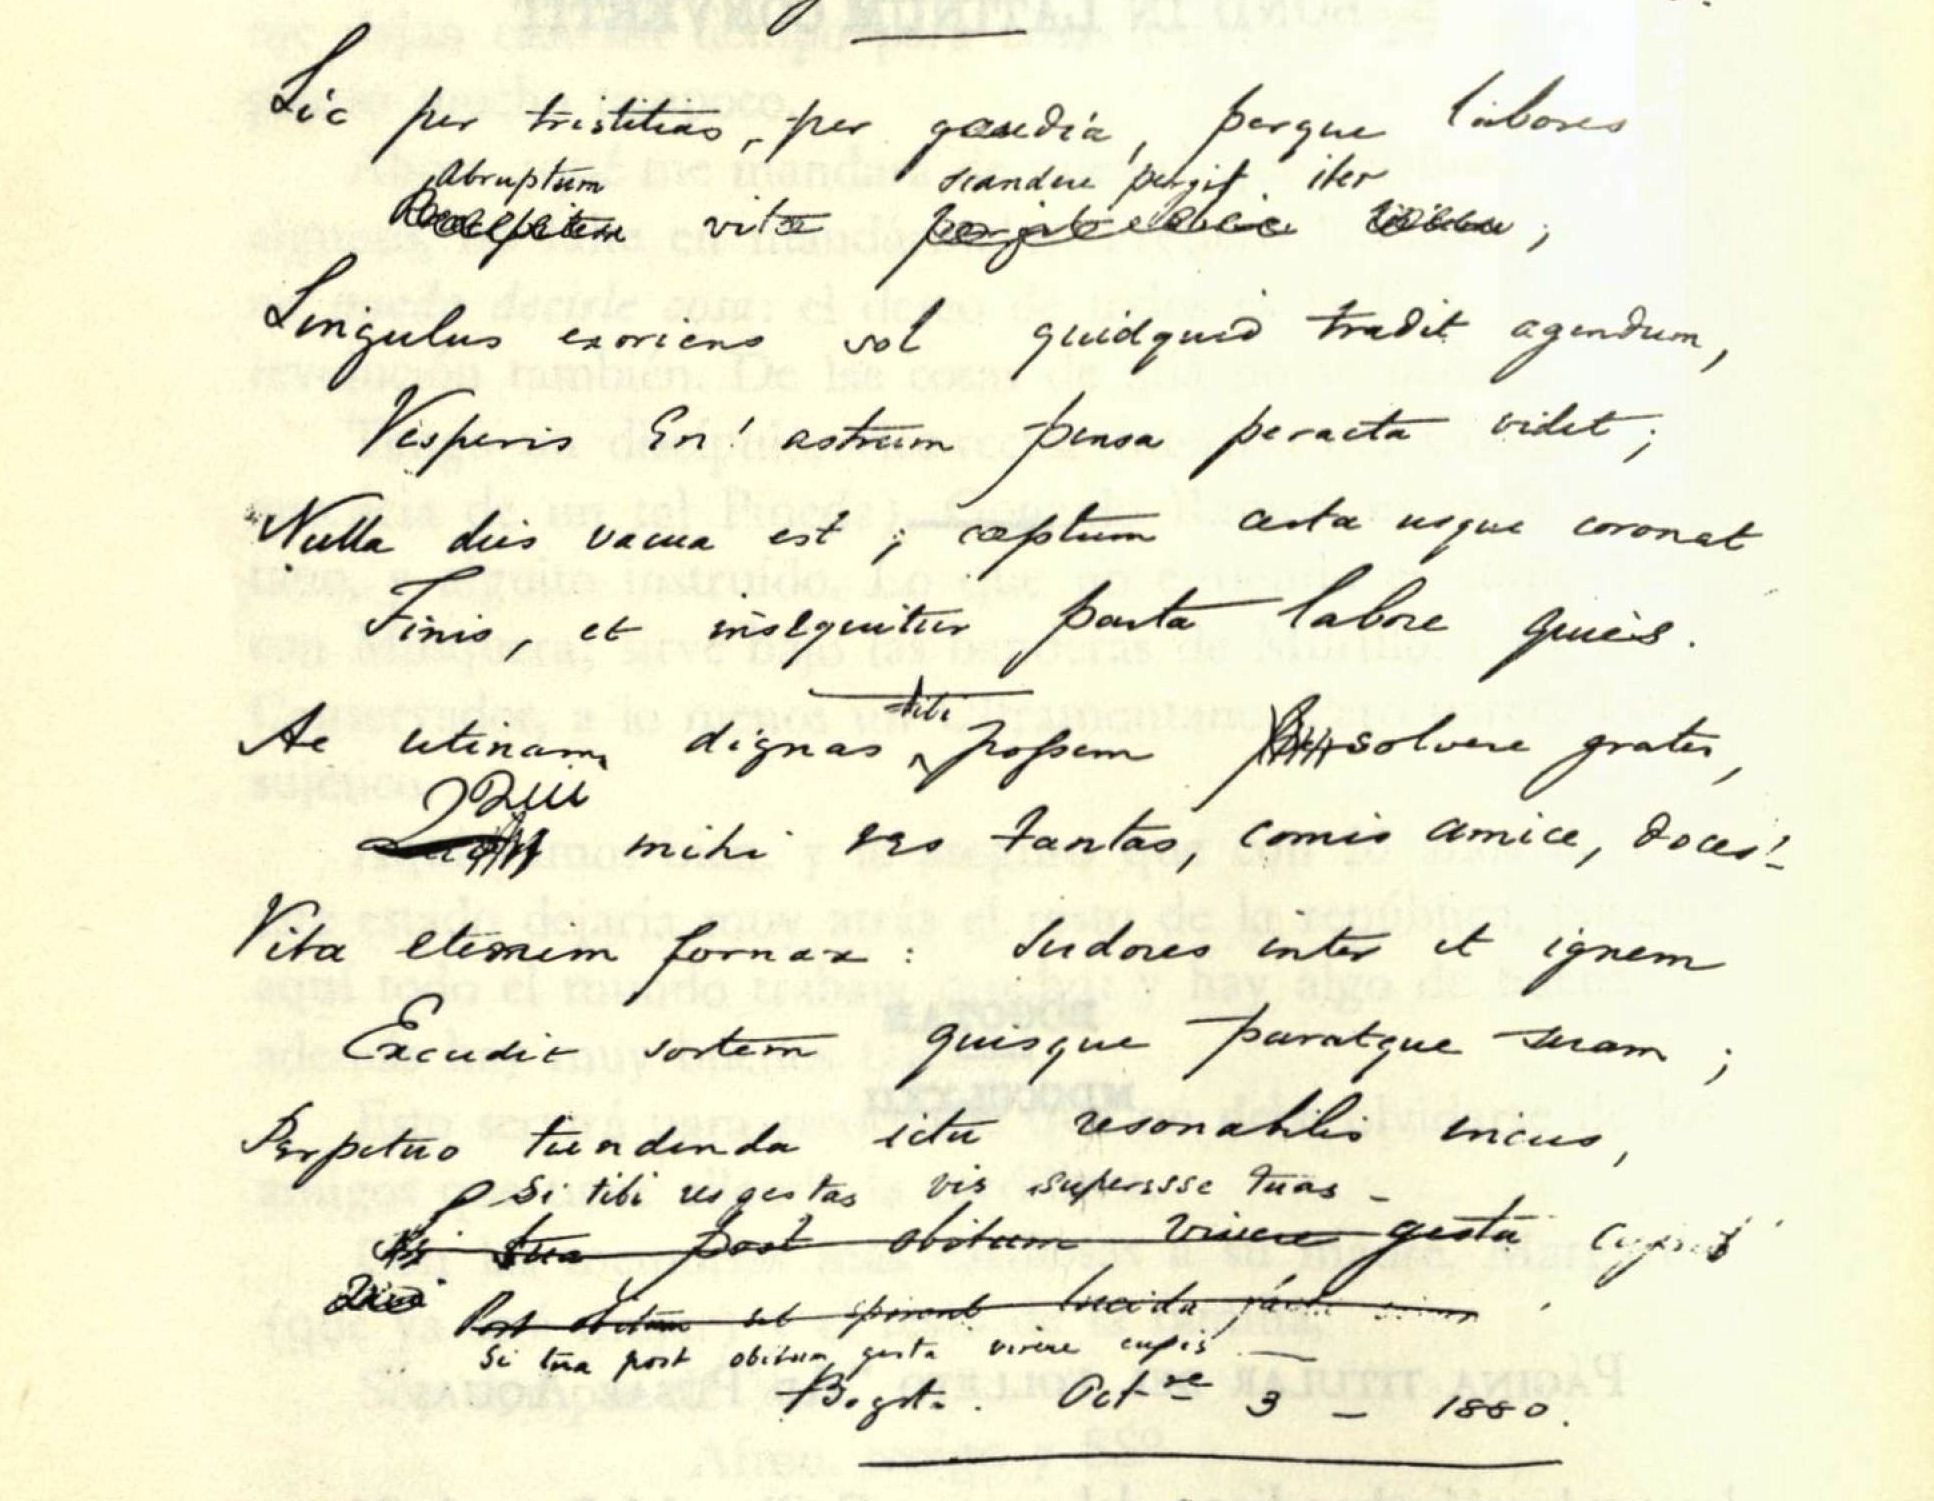 Sic per tristitias, per gaudia, perque labores
Abruptum scandere pergit iter
vitæ ;
Singulus exoriens sol quidquid tradit agendum,
Vesperis En! astrum pensa peracta videt;
Nulla dies vacua est; cœptum certa usque coronat
Finis, et insequitur parta labore quies.
tibi
Ac utinam dignas possem solvere grates,
Qui
mihi res tantas, comis amice, doces!
Vita etenim fornax: sudores inter et ignem
Excudit sortem quisque paratque suam;
Perpetuo tundenda ictu resonabilis incus,
Si tibi res gestas vis superesse tuas –
tua post obitum vivere gesta
Post obitum lucida
Si tua post obitum gesta vivere cupis —
Bogotá. Oct.re 3 – 1880.